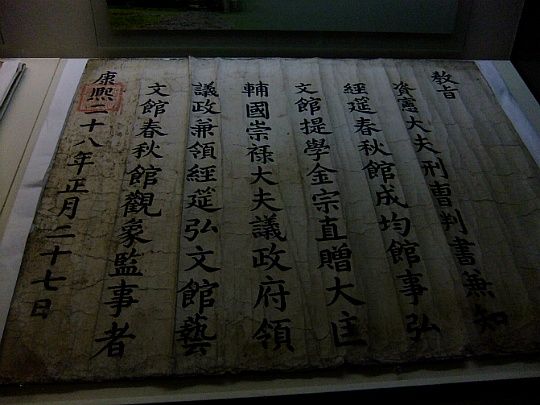 教旨
資憲大夫刑曹判書兼知
經筵春秋館成均館事弘
文館提學金宗直贈大匡
輔國崇祿大夫議政府領
議政兼領經筵弘文館藝
文館春秋館觀象監事者
康熙二十八年正月二十七日